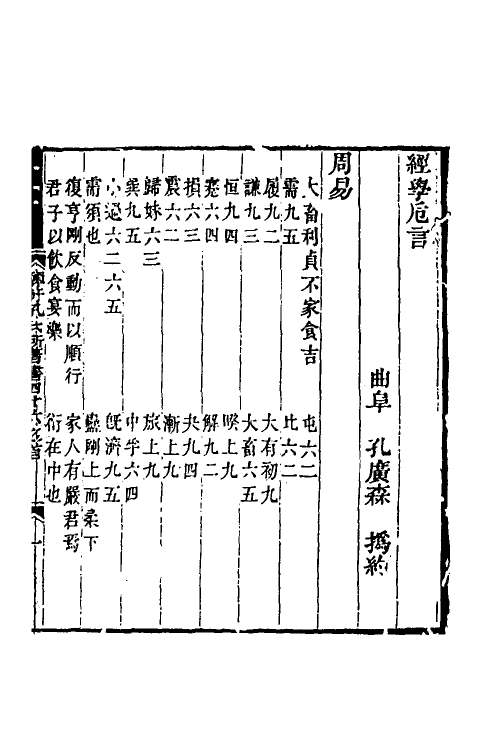 經學卮言
曲阜 孔廣森 撝約
周易
大畜利貞不家食吉 屯六二
需九五 比六二
履九二 大有初九
謙九三 大畜六五
恒九四 睽上九
蹇六四 解九二
損六三 夬九四
震六二 漸上九
歸妹六三 旅上九
巽九五 中孚六四
小過六二六五 既濟九五
需須也 蠱剛上而柔下
復亨剛反動而以順行 家人有嚴君焉
君子以飲食宴樂 衍在中也